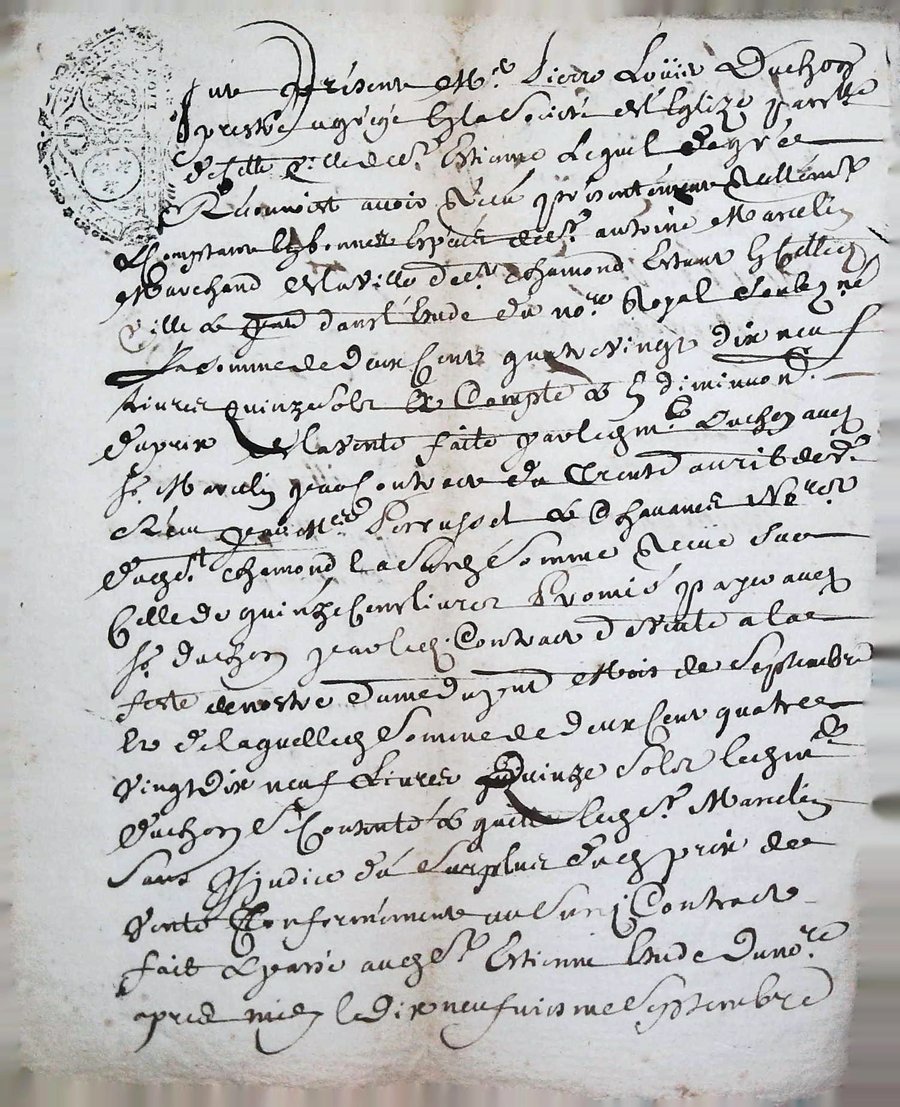 LION
Fut présent Mre Pierre Loüis Duchon
prestre agrégé En la Société de l'Eglize
de St Estienne Lequel de gré
Reconnoist avoir Receu présentement Réellemt
Comptant En bonnes Espèces de sr antoine Marcelin
Marchand de la ville de st chamond Estant En
ville dans l'Etude du nore Royal soubzné
La somme de deux Cent quatrevingt dix neuf
Livres quinze solz En Compte & En diminuon
du prix de la vente faite par led mre Duchon aud
sr Marcelin par Contract du trente avril der
Receu par Mes & Chavanes Nores
dud st chamond Lad somme Receüe sur
Celle de quinze Cens livres Promis payer aud
sr duchon par led Contract de vente a la
feste de nostre dame du pnt Mois de Septembre
Et de laquelle somme de deux Cent quatre
vingt dix neuf Livres quinze solz led mre
duchon s'est Contenté & quitte led sr Marcelin
sans préjudice du surplus dud prix de
vente Conformement au Contract
fait & passé aud st Estienne Etude du nore
apres midy le dix neufuiesme Septembre